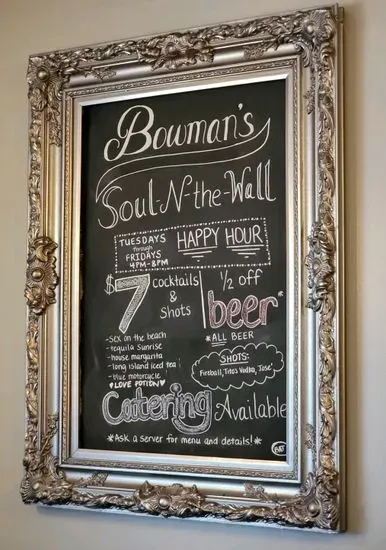 Bowman's
Soul-N-the-Wall
TUESDAYS
through
FRIDAYS
4PM-8PM
HAPPY HOUR
$7 cocktails
& shots
-SEX on the beach
-tequila sunrise
-house margarita
-long island iced tea
-blue motorcycle
♥LOVE POTION♥
1/2 off
beer*
*ALL BEER
SHOTS:
Fireball, Tito's Vodka, Jose'
Catering Available
*Ask a server for menu and details!*